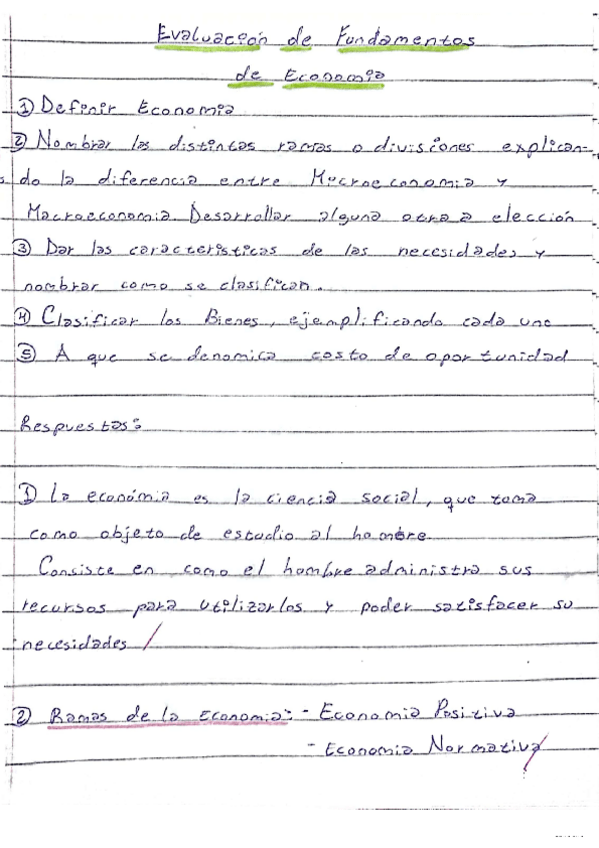 Evaluación de Fundamentos
de Economia
① Definir Economia
② Nombrar las distintas ramas o divisiones explican-
do la diferencia entre Mucroeconomia y
Macroeconomia. Desarrollar alguna otra a elección
③ Dar las caracteristicas de las necesidades y
nombrar como se clasifican.
④ Clasificar los Bienes, ejemplificando cada uno
⑤ A que se denomica costo de oportunidad
Respuestas:
① La económia es la ciencia social, que toma
como objeto de estudio al hombre.
Consiste en como el hombre administra sus
recursos para utilizarlos y poder satisfacer su
necesidades /
② Ramas de la Economia: - Economia Positiva
- Economia Normativa